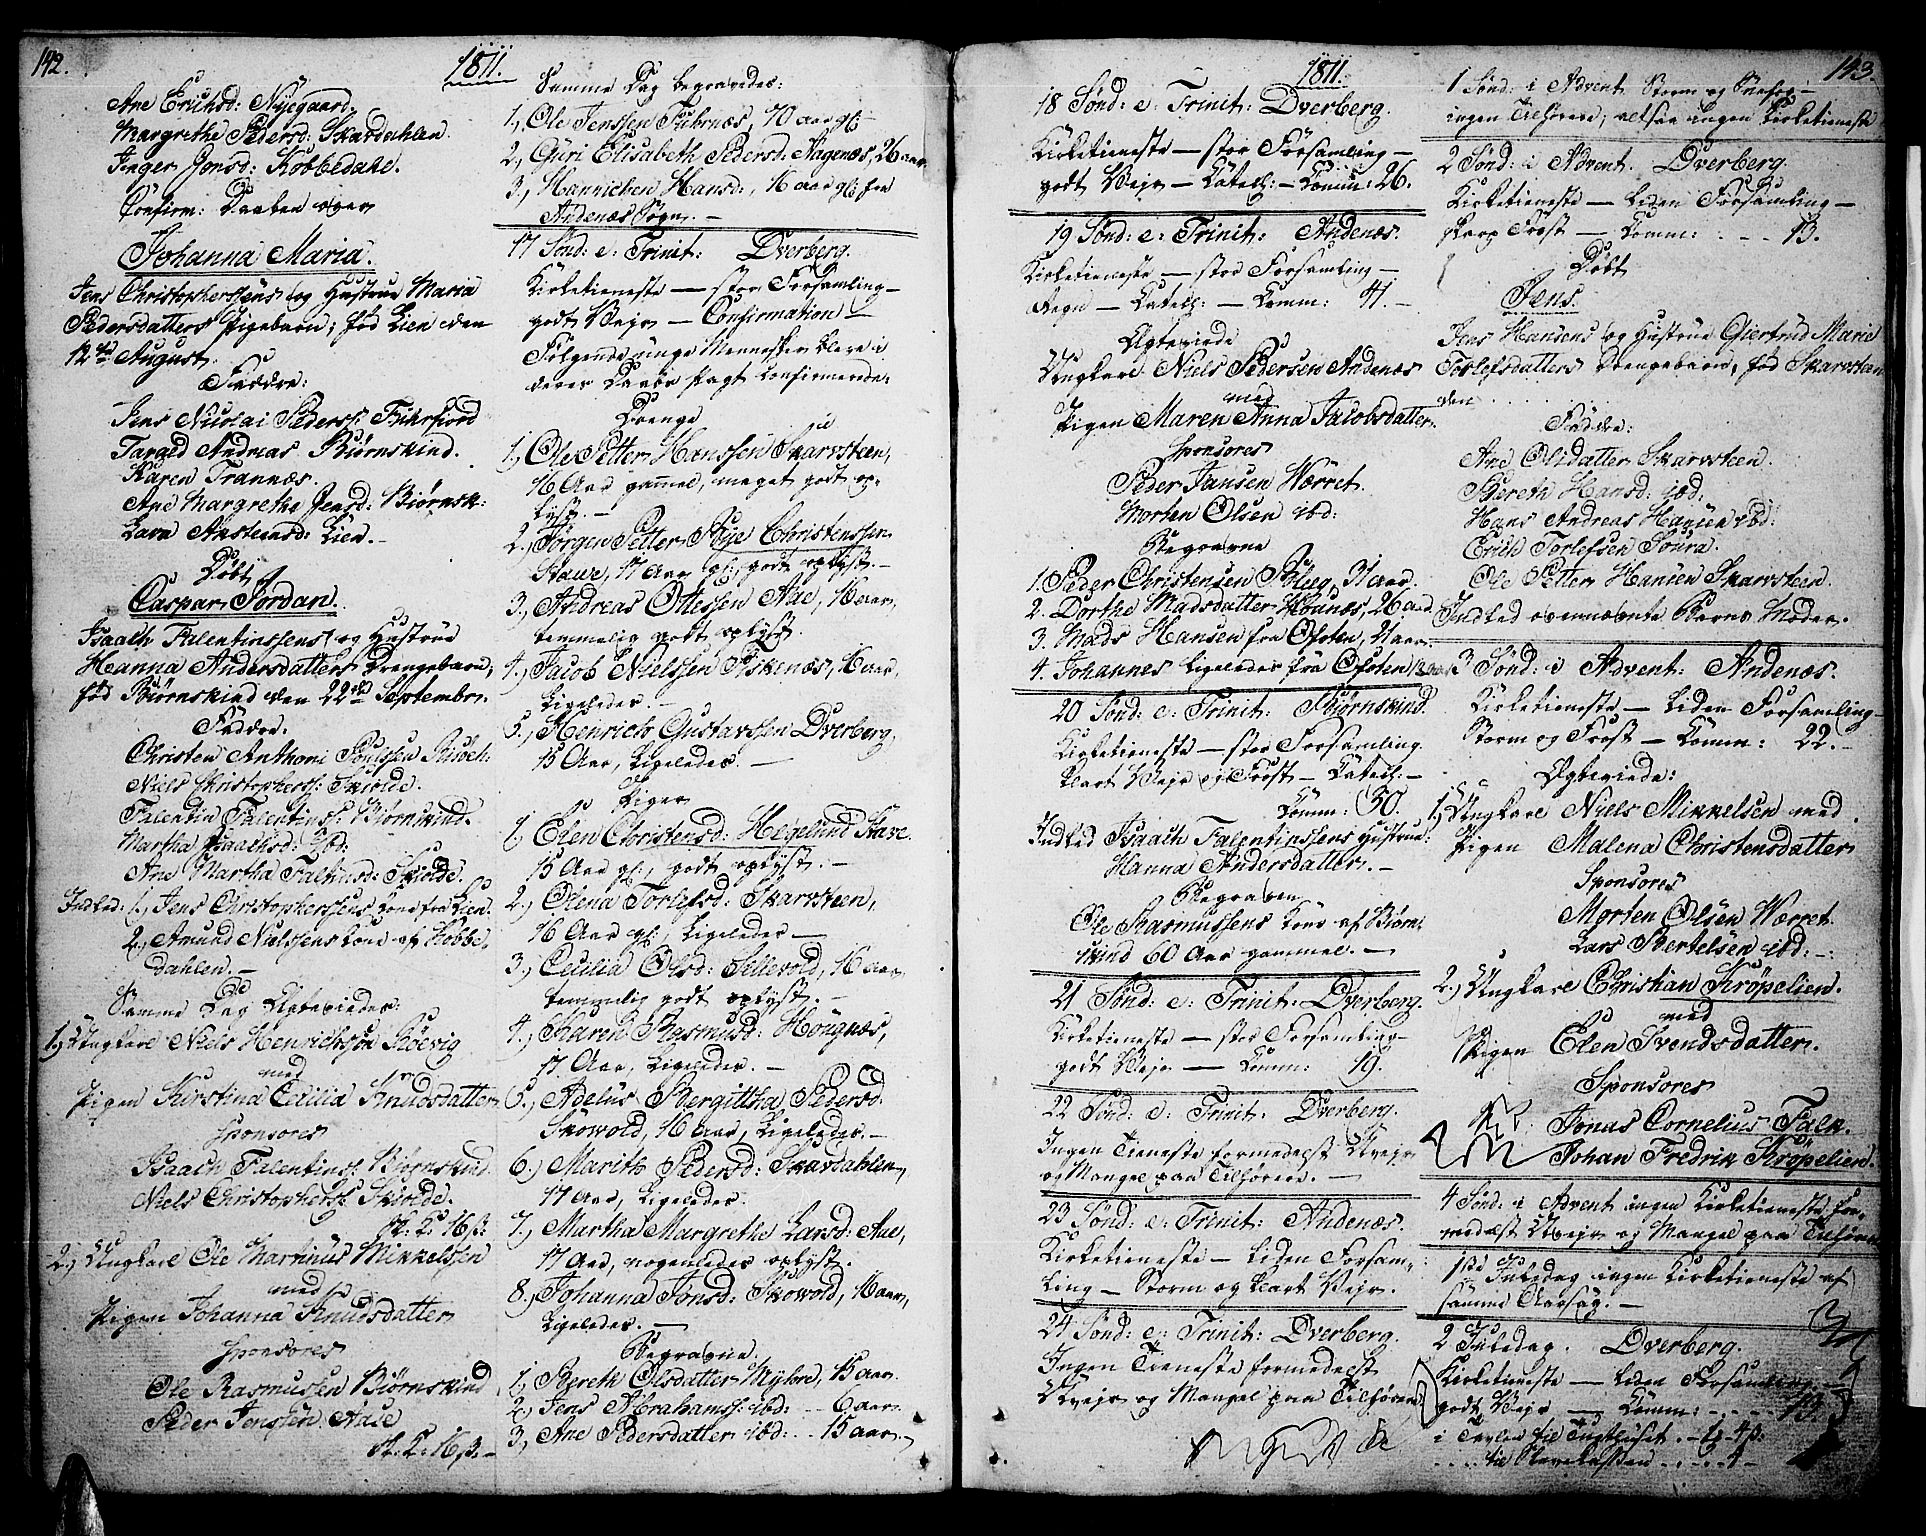 142.
1811.
Ane Erichsd: Nyegaard.
Margrethe Pedersd: Skardahlen.
Inger Jonsd: Kobbedahl.
Confirm: Daaben over
Johanna Maria.
Jens Christopherssens og Hustrue Maria
Pedersdatters Pigebarn, fød Lien den
12te August.
Faddre:
Jens Nicolai Pederss:
Andreas Biørnskind.
Karen Trannæs.
Ane Margrethe Jensd: Biørnsk:
Lava Anstensd: Lien.
Døbt
Caspar Jordan.
Isaach Falentinssens og Hustrue
Hanna Andersdatters Drengebarn,
fød Biørnskind den 22de September.
Faddre:
Christen Anthoni Poulssen
Niels Christopherss: Skiolde.
Falentin Falentins: Biørnskind.
Martha Isaachsd: Ibd:
Ane Martha Falentinsd: Skiolde.
Indled: 1, Jens Christopherssens Kone fra Lien.
2, Amund Nielssens Kone af Kobbe,
dahlen.
Samme Dag Ægteviede:
1, Ungkarl Niels Henrichsen
med
Pigen Kirstina Cecilia Knudsdatter
Sponsores
Isaach Falentinss: Biørnskind
Niels Christopherss: Skiolde.
2, Ungkarl Ole Martinus Mikkelssen
med
Pigen Johanna Knudsdatter
Sponsores
Ole Rasmusen Biørnskind
Peder Jenssen Aase
Samme Dag begravedes:
1, Ole Jenssen 70 Aar gl:
2, Guri Elisabeth Pedersd: Aagenæs, 26 aar
3, Hannichen Hansd:, 16 aar gl: fra
Andenæs Sogn.
17 Sønd: e: Trinit: Dverberg.
Kirketieneste — stor Forsamling —
godt Vejr — Confirmation
Følgende unge Mennesker bleve i
deres Daabs Pagt Confirmerede:
Drenge
1, Ole Petter Hanssen Skarvsteen,
16 Aar gammel, meget godt op-
lyst.
2, Jørgen Petter Bye Christenssen
Stawe, 17 Aar gl:, godt oplyst.
3, Andreas Ottessen Aae, 16 aar,
temmelig godt oplyst.
4, Jacob Nielssen Fiskenæs, 16 aar,
ligeledes.
5, Henrich Gustavssen Dverberg,
15 Aar, ligeledes.
Piger
1, Elen Christensd: Hegelund Stave.
15 Aar gl:, godt oplyst.
2, Olena Torlefsd: Skarvsteen,
16 Aar gl:, ligeledes
3, Cecilia Olsd: Sellevold, 16 aar,
temmelig godt oplyst.
4, Karen Rasmusd: Hougnæs,
17 Aar, ligeledes.
5, Adelus Bergittha Pedersd:
Skowold, 16 Aar, ligeledes.
6, Marith Pedersd: Skardahlen,
17 Aar, ligeledes.
7, Martha Margrethe Larsd: Aae,
17 Aar, nogenledes oplyst.
8, Johanna Jonsd: Skowold, 16 aar,
ligeledes.
Begravne.
1, Bereth Olsdatter Myhre, 15 aar.
2, Jens Abrahamss: ibd: - - 6 aar.
3, Ane Pedersdatter ibd: - - 15 aar.
1811.
143.
18 Sønd: e: Trinit: Dverberg.
Kirketieneste — stor Forsamling —
godt Vejr — Catech: — Comm: 26.
19 Sønd: e: Trinit: Andenæs.
Kirketieneste — stor Forsamling —
Regn — Catech: — Comm: 41.
Ægteviede
Ungkarl Niels Pedersen Andenæs
med
Pigen Maren Anna Jacobsdatter
Sponsores
Peder Jansen Wærret
Morten Olsen ibd:
Begravne
1. Peder Christensen 31 aar.
2. Dorthe Madsdatter 26 aar.
3. Mads Hansen fra Ofoten, 21 aar.
4. Johannes ligeledes fra Ofoten
20 Sønd: e: Trinit: Biørnskind.
Kirketieneste — stor Forsamling
klart Vejr og Frost — Catech: —
Comm: 50.
Indled Isaach Falentinssens Hustrue
Hanna Andersdatter.
Begraven
Ole Rasmussens Kone af Biørn
skind 60 Aar gammel.
21 Sønd: e: Trinit: Dverberg.
Kirketieneste — stor Forsamling —
godt Vejr — Comm: 19.
22 Sønd: e: Trinit: Dverberg.
Ingen Tieneste formedelst Uvejr
og Mangel paa Tilhørere.
23 Sønd: e: Trinit: Andenæs.
Kirketieneste — liden Forsam,
ling — Storm og klart Vejr.
24 Sønd: e: Trinit: Dverberg.
Ingen Tieneste formedelst
Uvejr og Mangel paa Tilhørere
1 Sønd: i Advent Storm og Snefog —
ingen Tilhørere, altsaa ingen Kirketieneste
2 Sønd: i Advent. Dverberg.
Kirketieneste — liden Forsamling —
skarp Frost — Comm: - - - 13.
Døbt
Jens.
Jens Hansens og Hustrue Giertrud Marie
Torlefsdatters Drengebarn, fød Skarvsteen
den . . . . .
Faddre:
Ane Olsdatter Skarvsteen.
Bereth Hansd: ibd:
Hans Andreas Hansen ibd:
Erich Torlefsen Soura.
Ole Petter Hansen Skarvsteen.
Indled ovennævnte Barns Moder.
3 Sønd: i Advent: Andenæs.
Kirketieneste — liden Forsamling —
Storm og Frost — Comm: 22.
Ægteviede:
1, Ungkarl Niels Mikkelsen med
Pigen Malena Christensdatter
Sponsores
Morten Olsen Wærret
Lars Bertelsen ibd:
2, Ungkarl Christian Krøpelien.
med
Pigen Elen Svendsdatter.
Sponsores
Jonas Cornelius Falk.
Johan Fredrik Krøpelien.
4 Sønd: i Advent ingen Kirketieneste for-
medelst Uvejr og Mangel paa Tilhørere
1ste Juledag ingen Kirketieneste af
samme Aarsag.
2 Juledag. Dverberg.
Kirketieneste — liden Forsamling
godt Vejr — Comm: - - - 13.
i Tavlen til Tugthuset